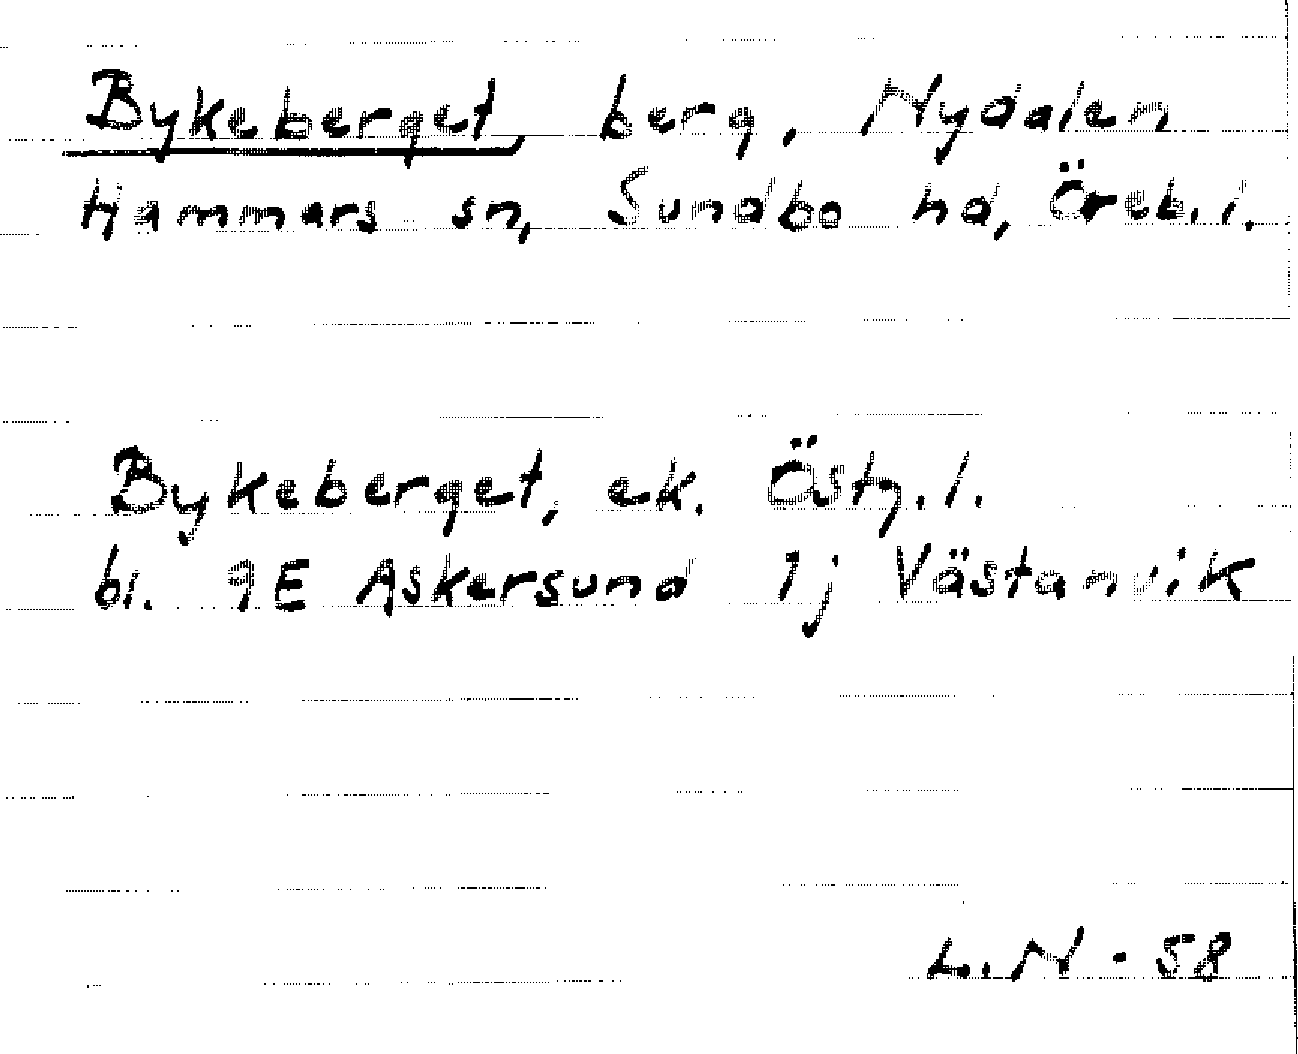 Bykeberget, berg, Nydalen
Hammars sn, Sundbo hd, Öreb. l.
Bykeberget, ek. Östg. l.
bl. 9E Askersund 1j Västanvik
L. N - 58